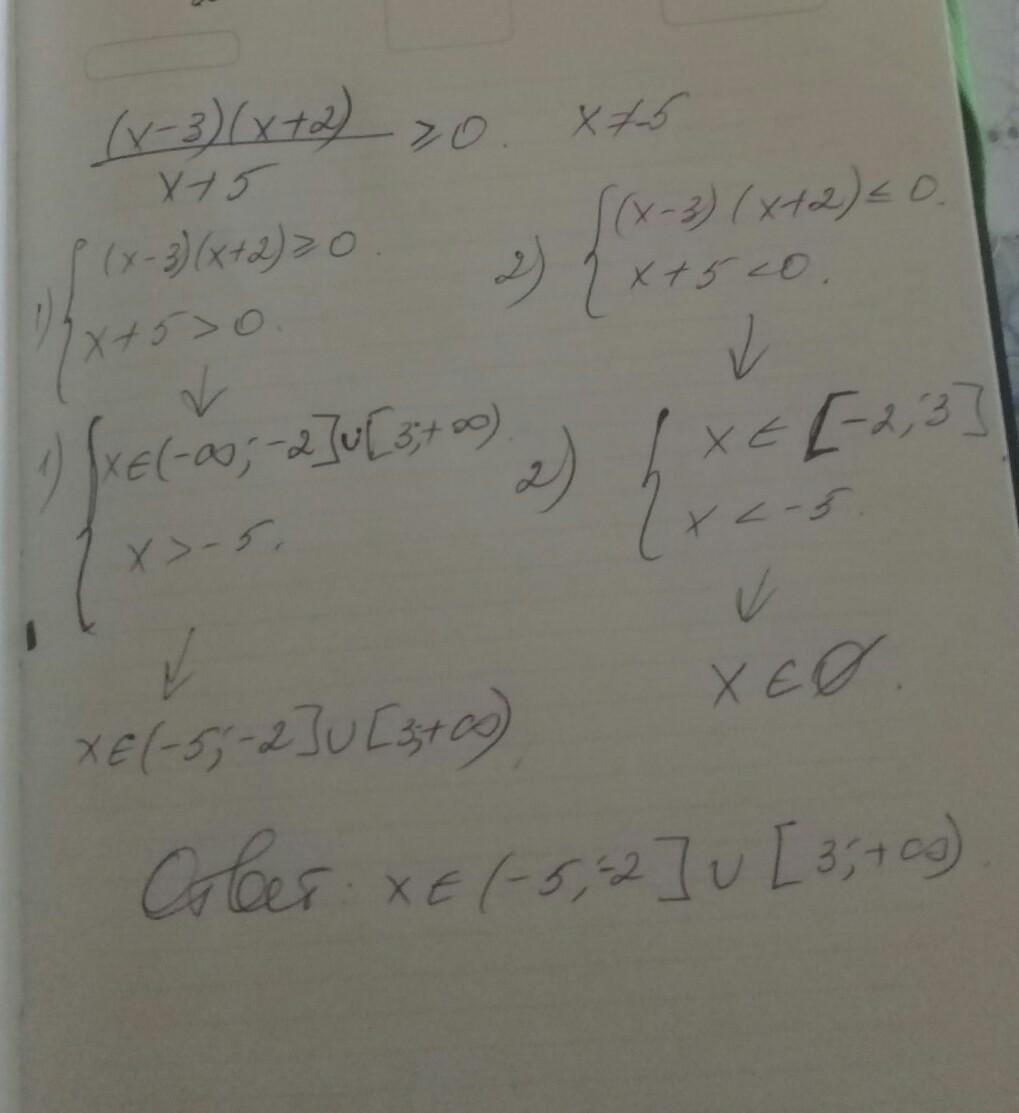 (x-3)(x+2)
x+5
≥0. x≠-5
1) { (x-3)(x+2)≥0.
x+5>0.
2) { (x-3)(x+2)≤0.
x+5<0.
↓
↓
1) { x∈(-∞;-2]∪[3;+∞).
x>-5.
2) { x∈[-2;3]
x<-5.
↓
↓
x∈(-5;-2]∪[3;+∞),
x∈∅.
Ответ: x∈(-5;-2]∪[3;+∞).